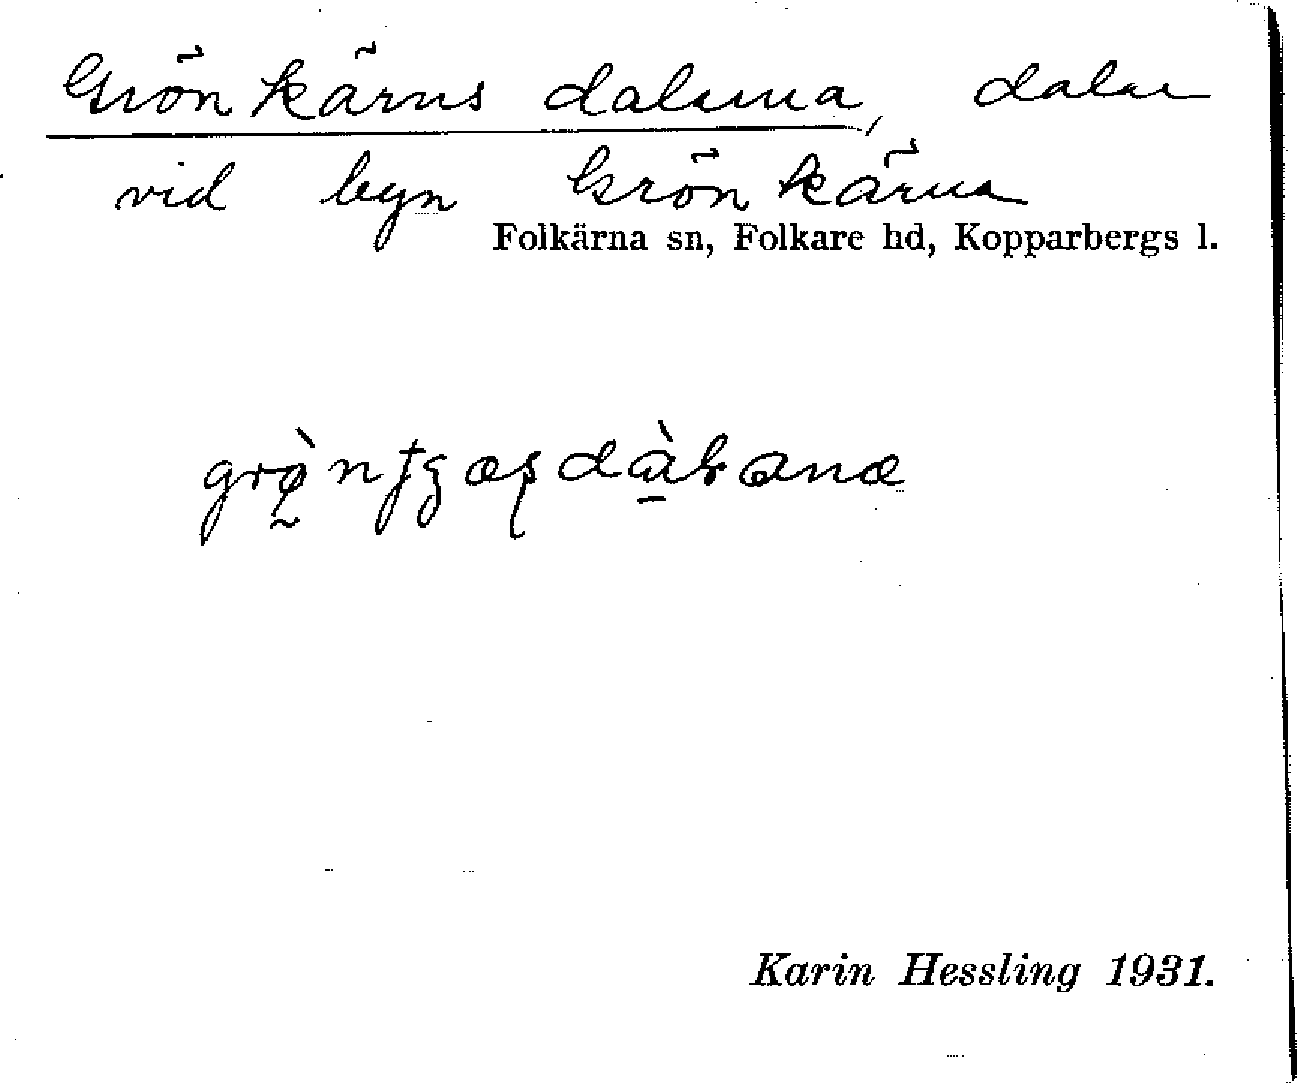 Grönkärns dalarna, dalar
vid byn Grönkärna
Folkärna sn, Folkare hd, Kopparbergs l.
Karin Hessling 1931.